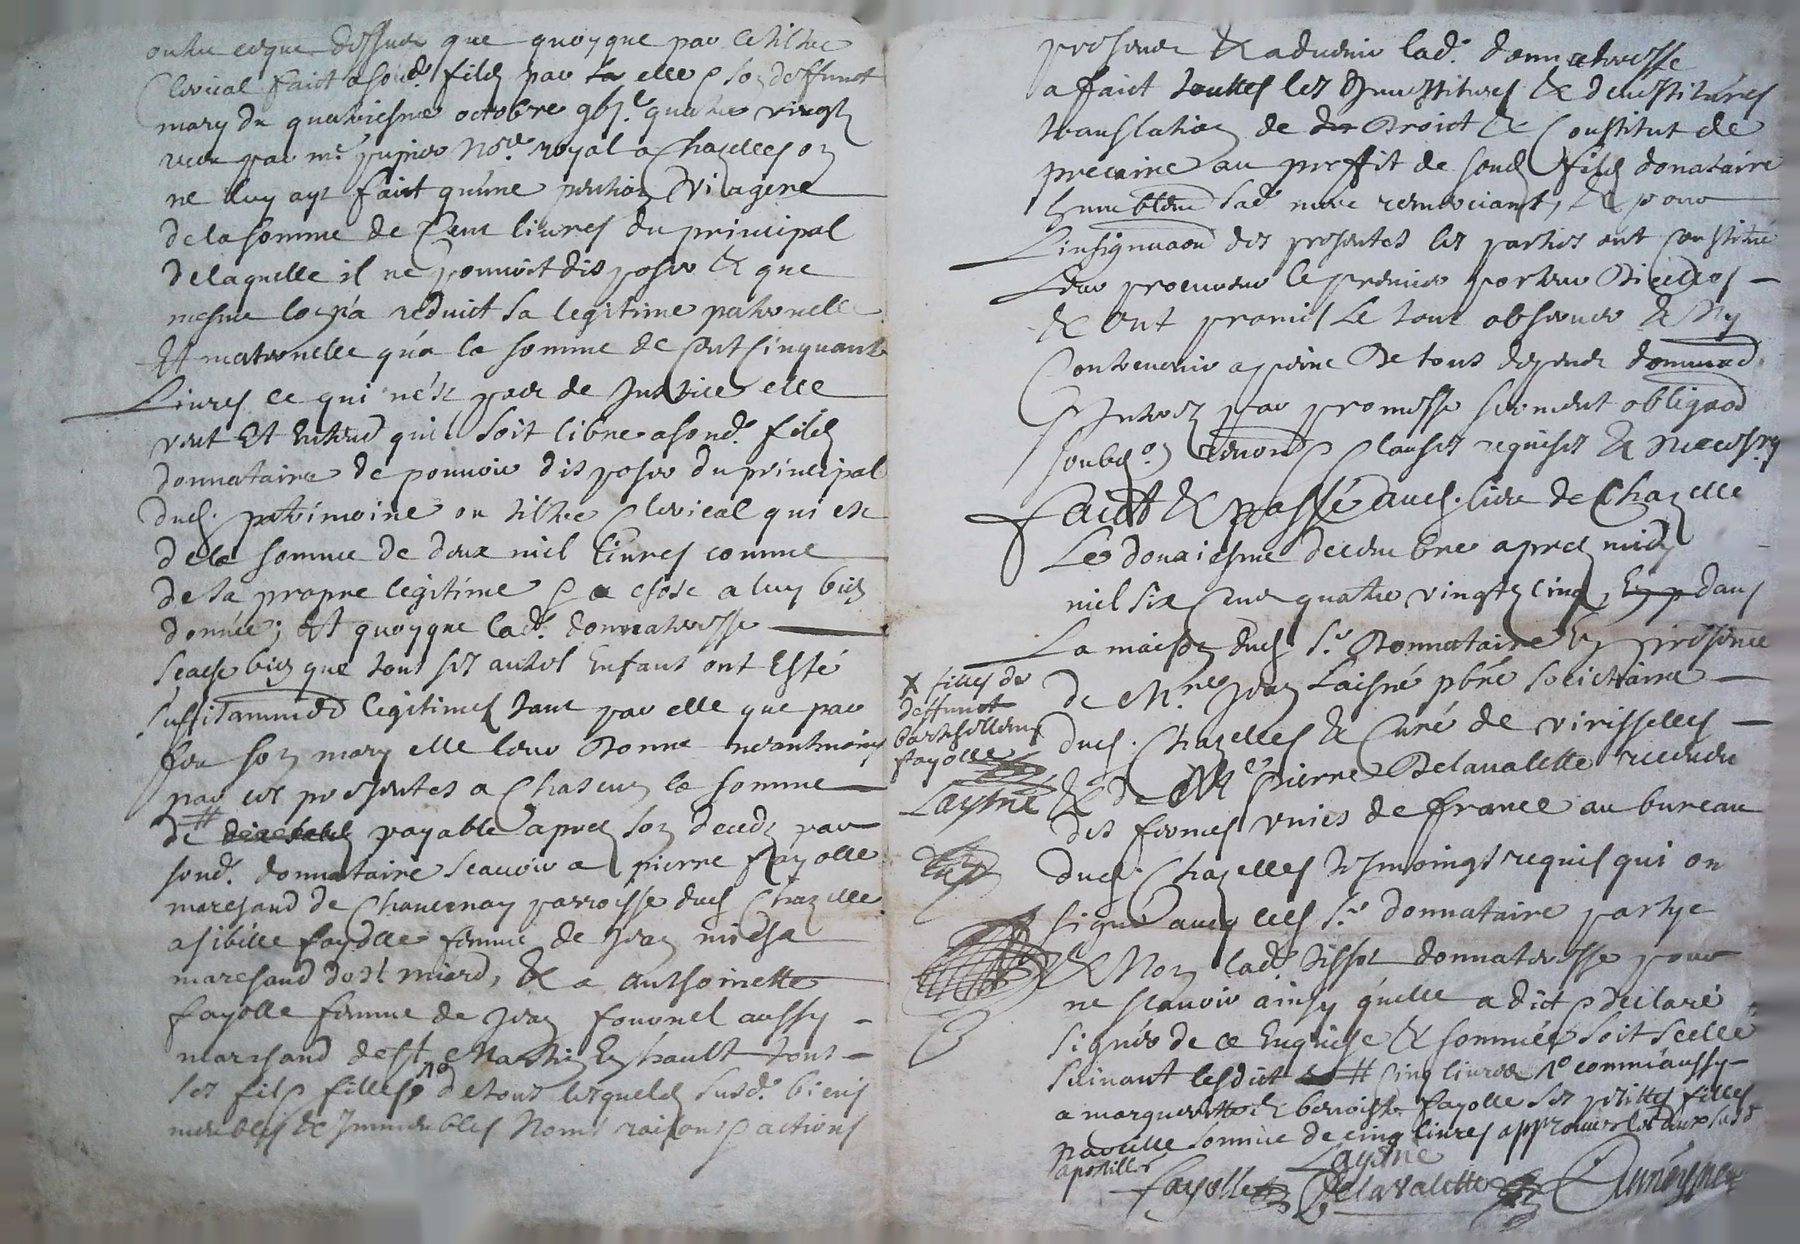 outre ce que dessus que quoyque par le tiltre
Clerical faict a sond. filz par elle & son deffunct
mary du quatriesme octobre quatre vingtz
receu par me no.re royal a Chazelles on
ne luy ayt faict qu'une pention viagere
de la somme de Cent livres du principal
de laquelle il ne pouvoit disposer & que
mesme lon a reduict sa legitime paternelle
Et maternelle qu'a la somme de Cent Cinquante
Livres ce qui n'est pas de Justice elle
veut Et entend qu'il soit libre a sond. filz
donnataire de pouvoir disposer du principal
dud. patrimoine ou tiltre Clerical qui est
de la somme de deux mil livres comme
de sa propre legitime & a chose a luy bien
donnée; Et quoyque lad. donnatresse
scache bien que tous ses autres Enfans ont Esté
suffisamment legitimes tant par elle que par
feu son mary elle leur Donne neantmoins
par ces presentes a Chascun la somme
de payable apres son deceds par
sond. donnataire scavoir a pierre fayolle
marchand de Chavernay parroisse dud Chazelle
a sibille fayolle femme de Jean
marchand de st miard, & a anthoinette
fayolle femme de Jean fournel aussy
marchand de st Marthin En hault tous
ses filz & filles, de tous lesquels susd. biens
meubles & Immeubles Noms raisons & actions
presens & advenir lad. donnatresse
a faict touttes les Investitures & devestitures
translation de Droict & Constitut de
precaire au proffit de sond filz donataire
humblement sad. mere remerciant, & pour
L'insignuaon des presentes les parties ont Constitué
Leur procureur le premier porteur Dicelles
& ont promis Le tout observer & Ny
Contrevenir a peine De tous depens dommad.
& Interestz par promesse serment obligaon
soubz.on renon & Clauses requises & necess.res
Faict & passé aud. lieu de Chazelle
Le douziesme decembre apres midy
mil six Cens quatre vingtz cinq, dans
La maison dud Sr. Donnataire En presence
de M.re Jean Laisné pbre societaire
dud. Chazelles & Curé de virisselles
& de Me pierre Delavalette receveur
des fermes unies de france au bureau
dud. Chazelles tesmoingz requis qui on
signé avec led Sr. donnataire partye
& Non lad. tissot donnatresse pour
ne scavoir ainsy quelle a dict & declaré
signer de ce Enquise & sommée soit scellé
suivant lesdict # Cinq livres comme aussy
a margueritte & benoiste fayolle ses petittes filles
pareille somme de cinq livres approuver
apostille
x filles de
deffunct
barthellemy
fayolle
Laysné
Laysné
Fayolle
Delavalette